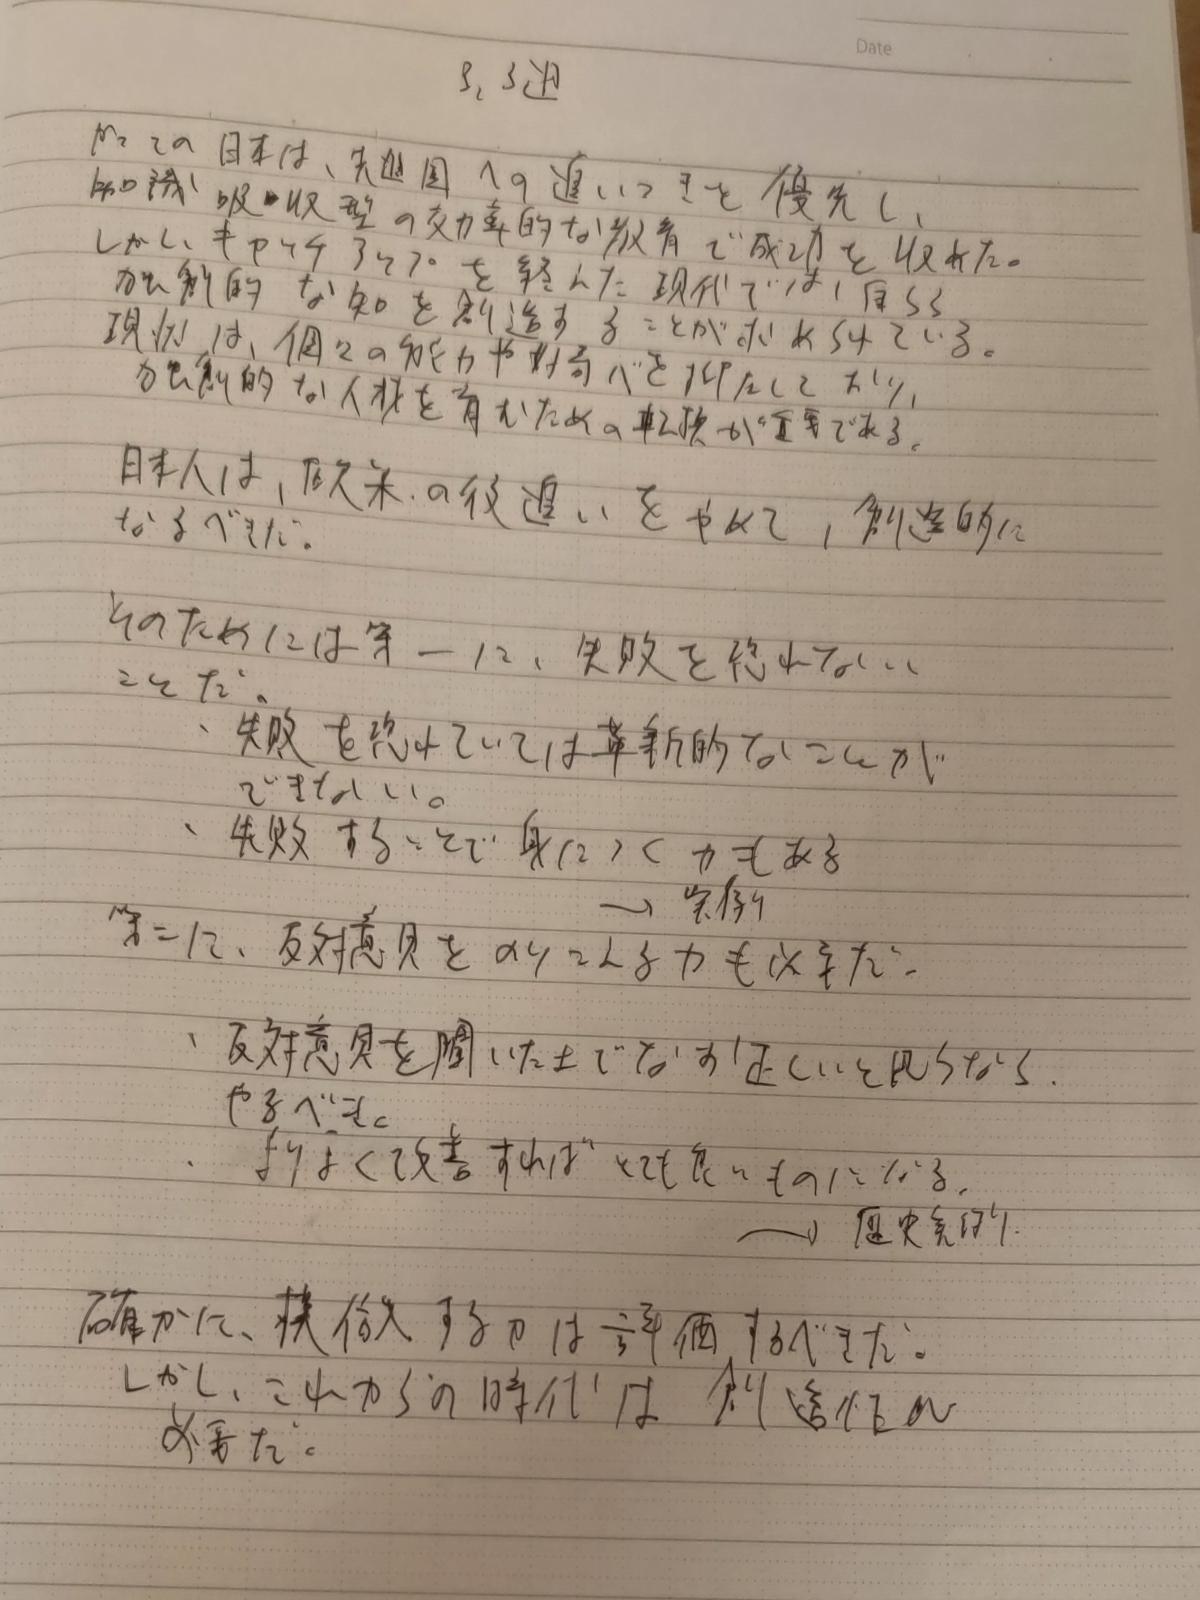 Date
3、3週
かつての日本は、先進国への追いつきを優先し、
知識吸収型の効率的な教育で成功を収めた。
しかしキャッチアップを経た現代では、自ら
独創的な知を創造することが求められている。
現状は、個々の能力や対話を
独創的な人材を育むための転換が重要である。
日本人は、欧米の後追いをやめて、創造的に
なるべきだ。
そのためには第一に、失敗を恐れない
ことだ。
・失敗を恐れていては革新的なことが
できない。
・失敗することで身につく力もある
→実例
第二に、反対意見をのりこえる力も必要だ。
・反対意見を聞いた上でなお正しいと思うなら
やるべき。
・よりよく改善すればとても良いものになる。
→歴史実例
確かに、模倣する力は評価するべきだ。
しかし、これからの時代は創造性が
必要だ。